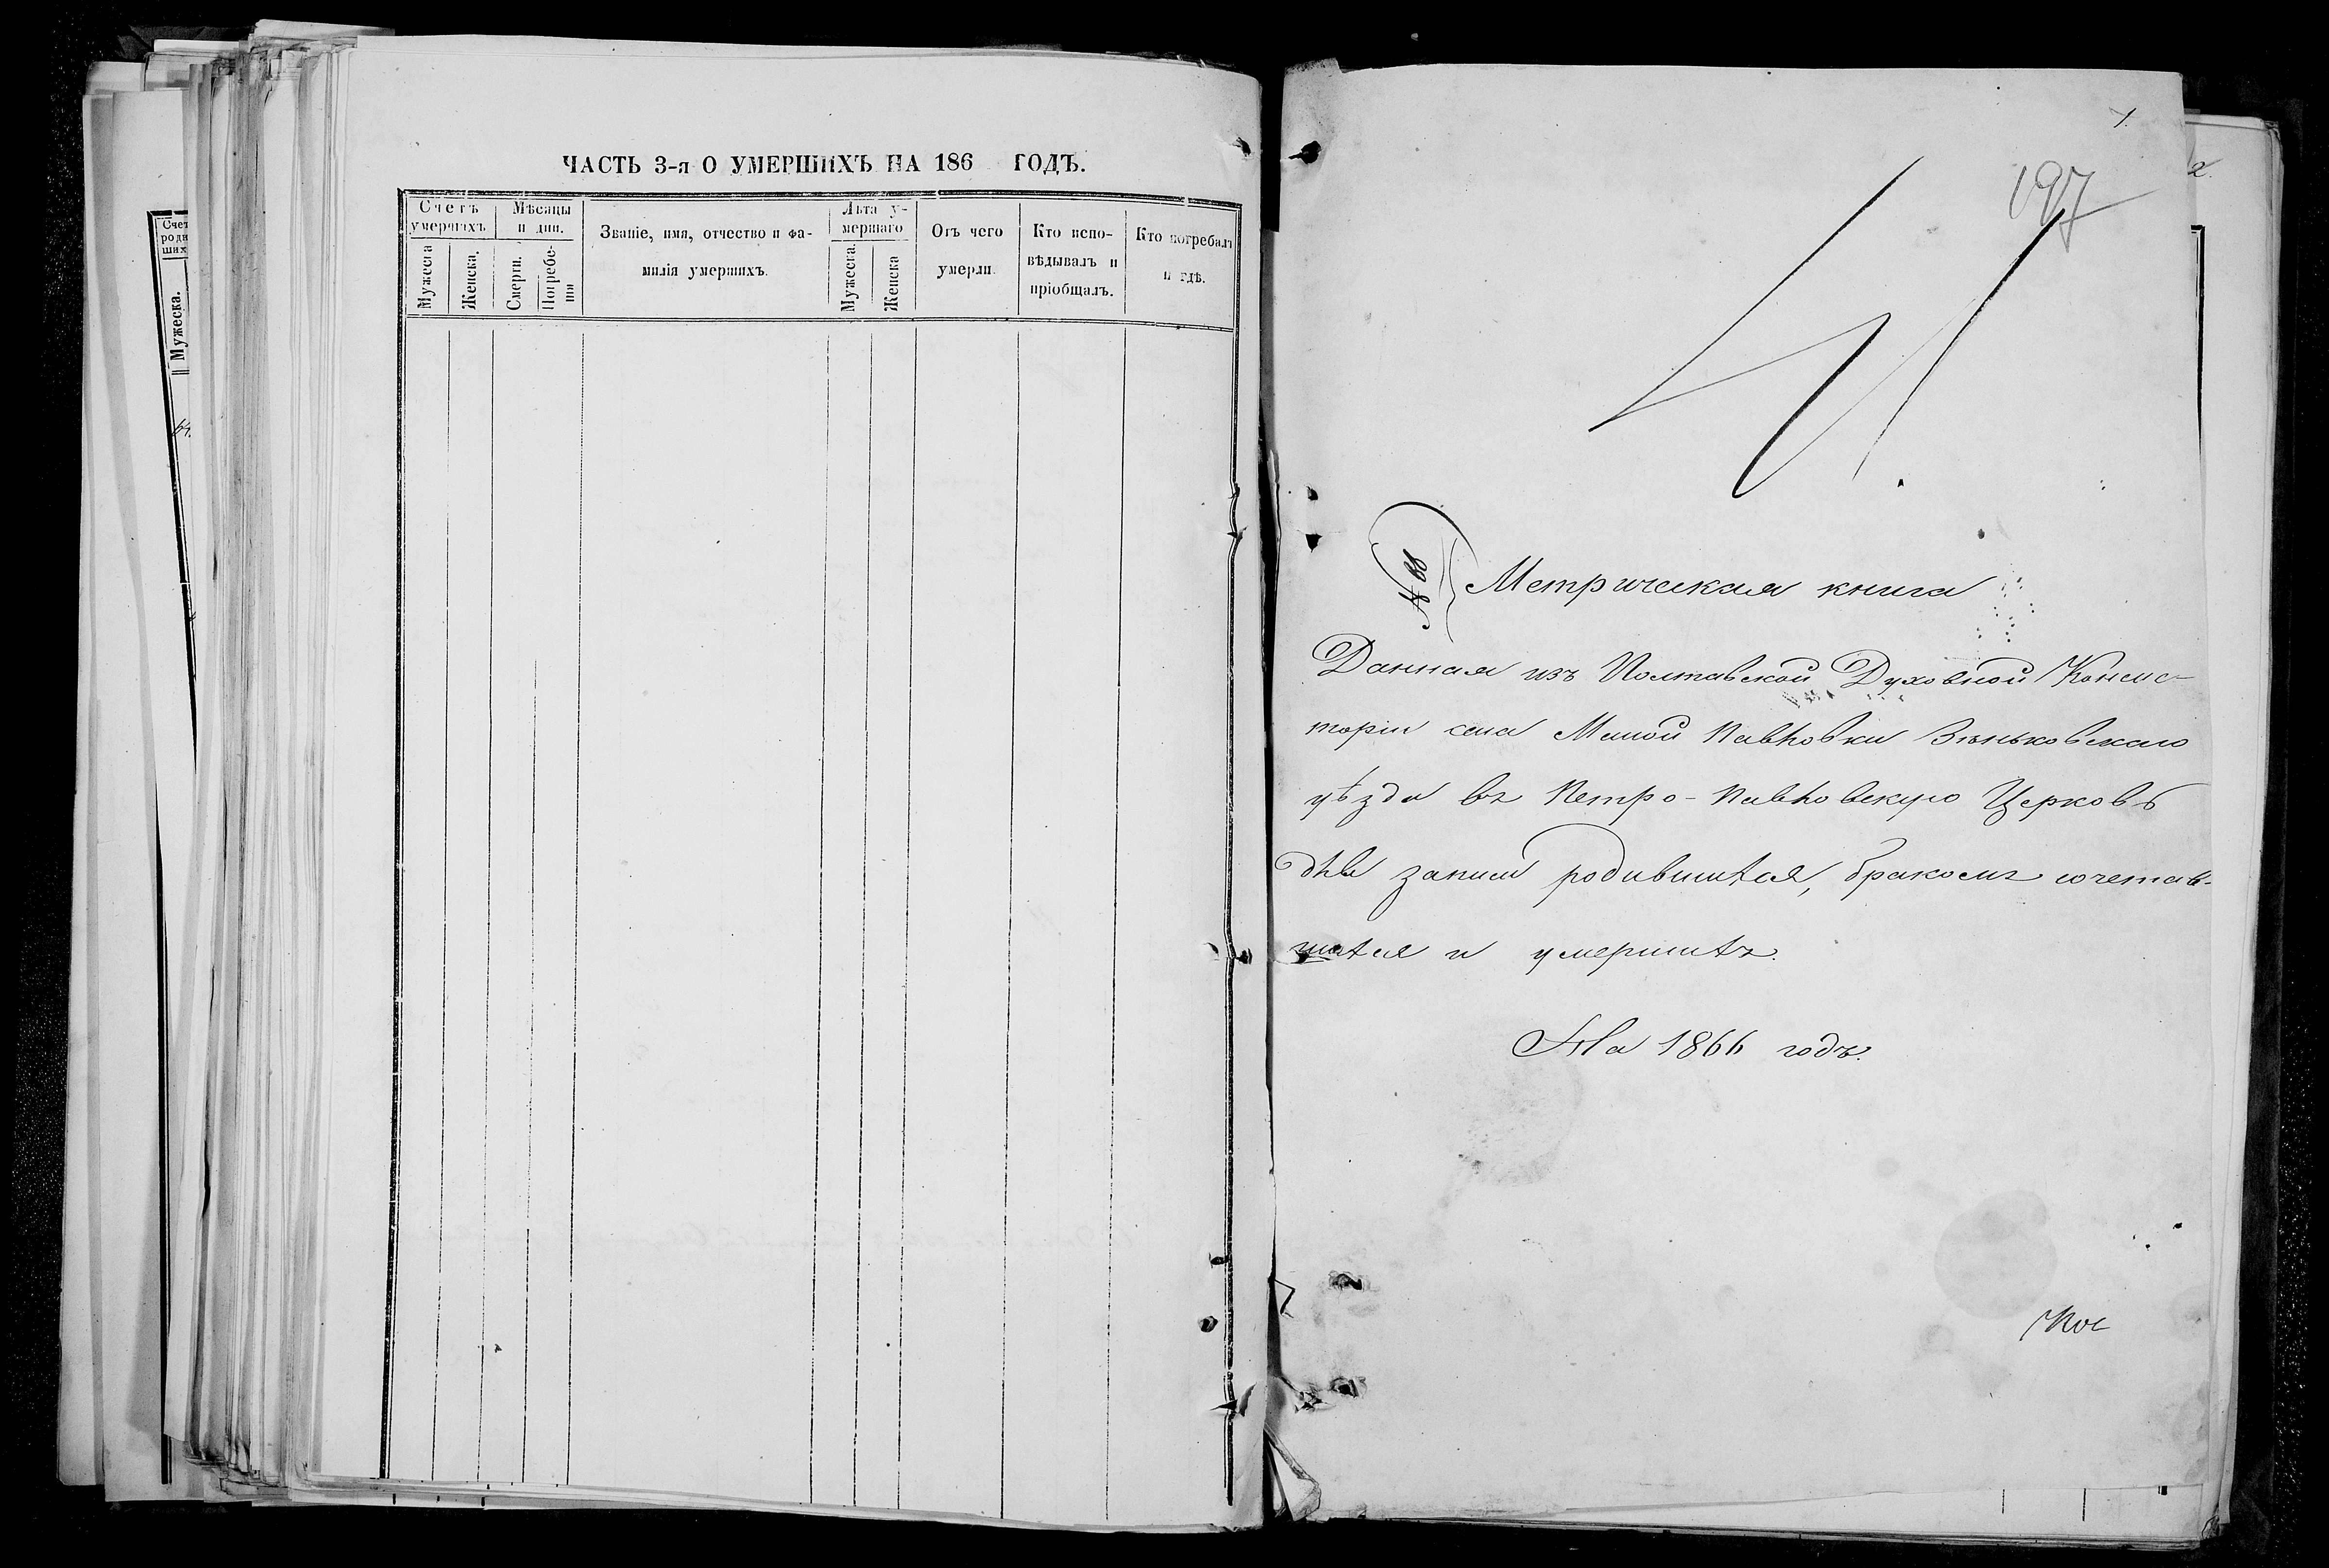 ЧАСТЬ 3-я О УМЕРШИХЪ НА 186 ГОДЪ.
Счетъ умершихъ
Мужеска
Женска.
Мѣсяцы и дни.
Смерти.
Погребенія
Званіе, имя, отчество и фамилія умершихъ.
Лѣта умершаго
Мужеска.
Женска
Отъ чего умерли.
Кто исповѣдывалъ и пріобщалъ.
Кто погребалъ и гдѣ.
Мужеска.
1.
197
2.
№ 88
Метрическая книга
Данная изъ Полтавской Духовной Консис-
торіи села Малой Павловки Зѣньковскаго
уѣзда въ Петро-Павловскую Церковь
для записи родившихся, бракомъ сочетав-
шихся и умершихъ.
На 1866 годъ.